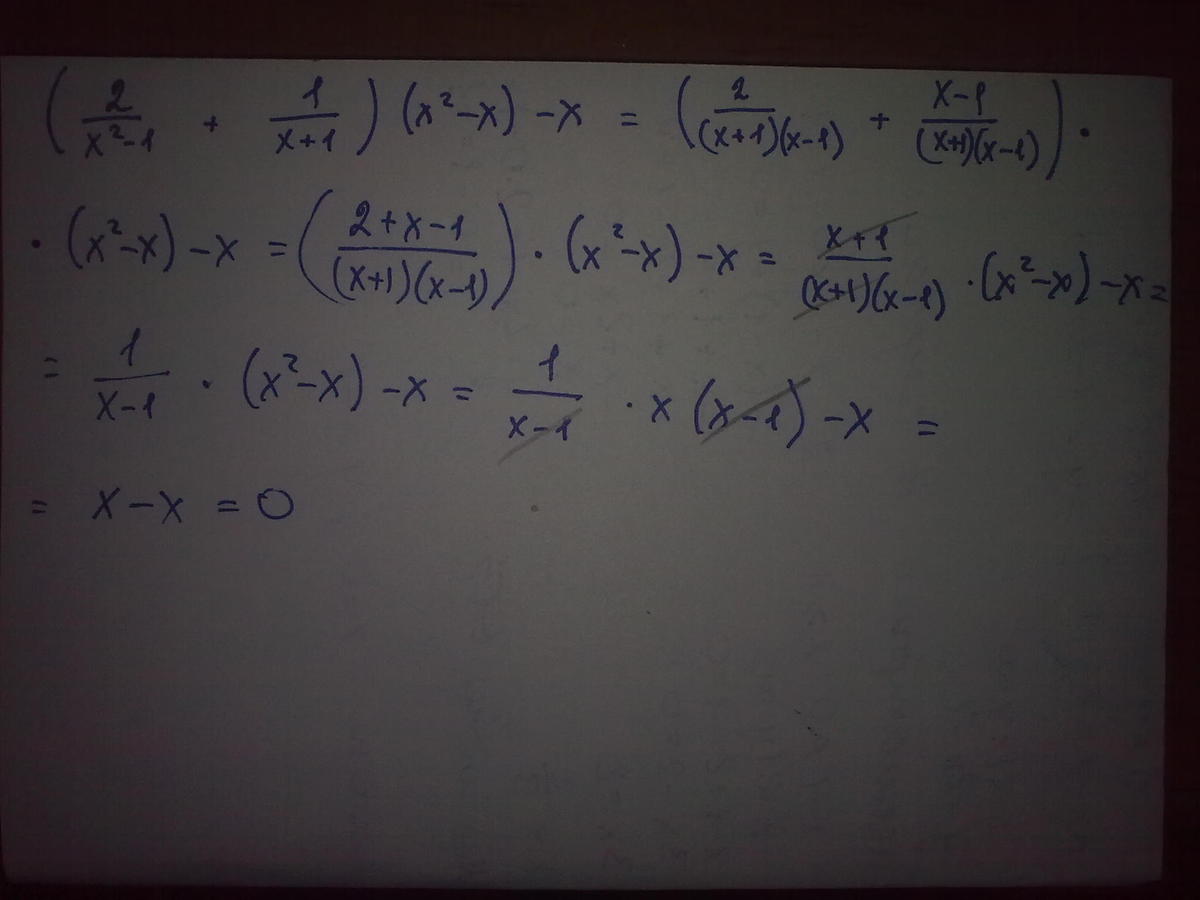 ( 2/(x²-1) + 1/(x+1) ) (x²-x) -x = ( 2/((x+1)(x-1)) + (x-1)/((x+1)(x-1)) ) ·
· (x²-x) -x = ( (2+x-1)/((x+1)(x-1)) ) · (x²-x) -x = (x+1)/((x+1)(x-1)) · (x²-x) -x =
= 1/(x-1) · (x²-x) -x = 1/(x-1) · x (x-1) -x =
= x-x = 0